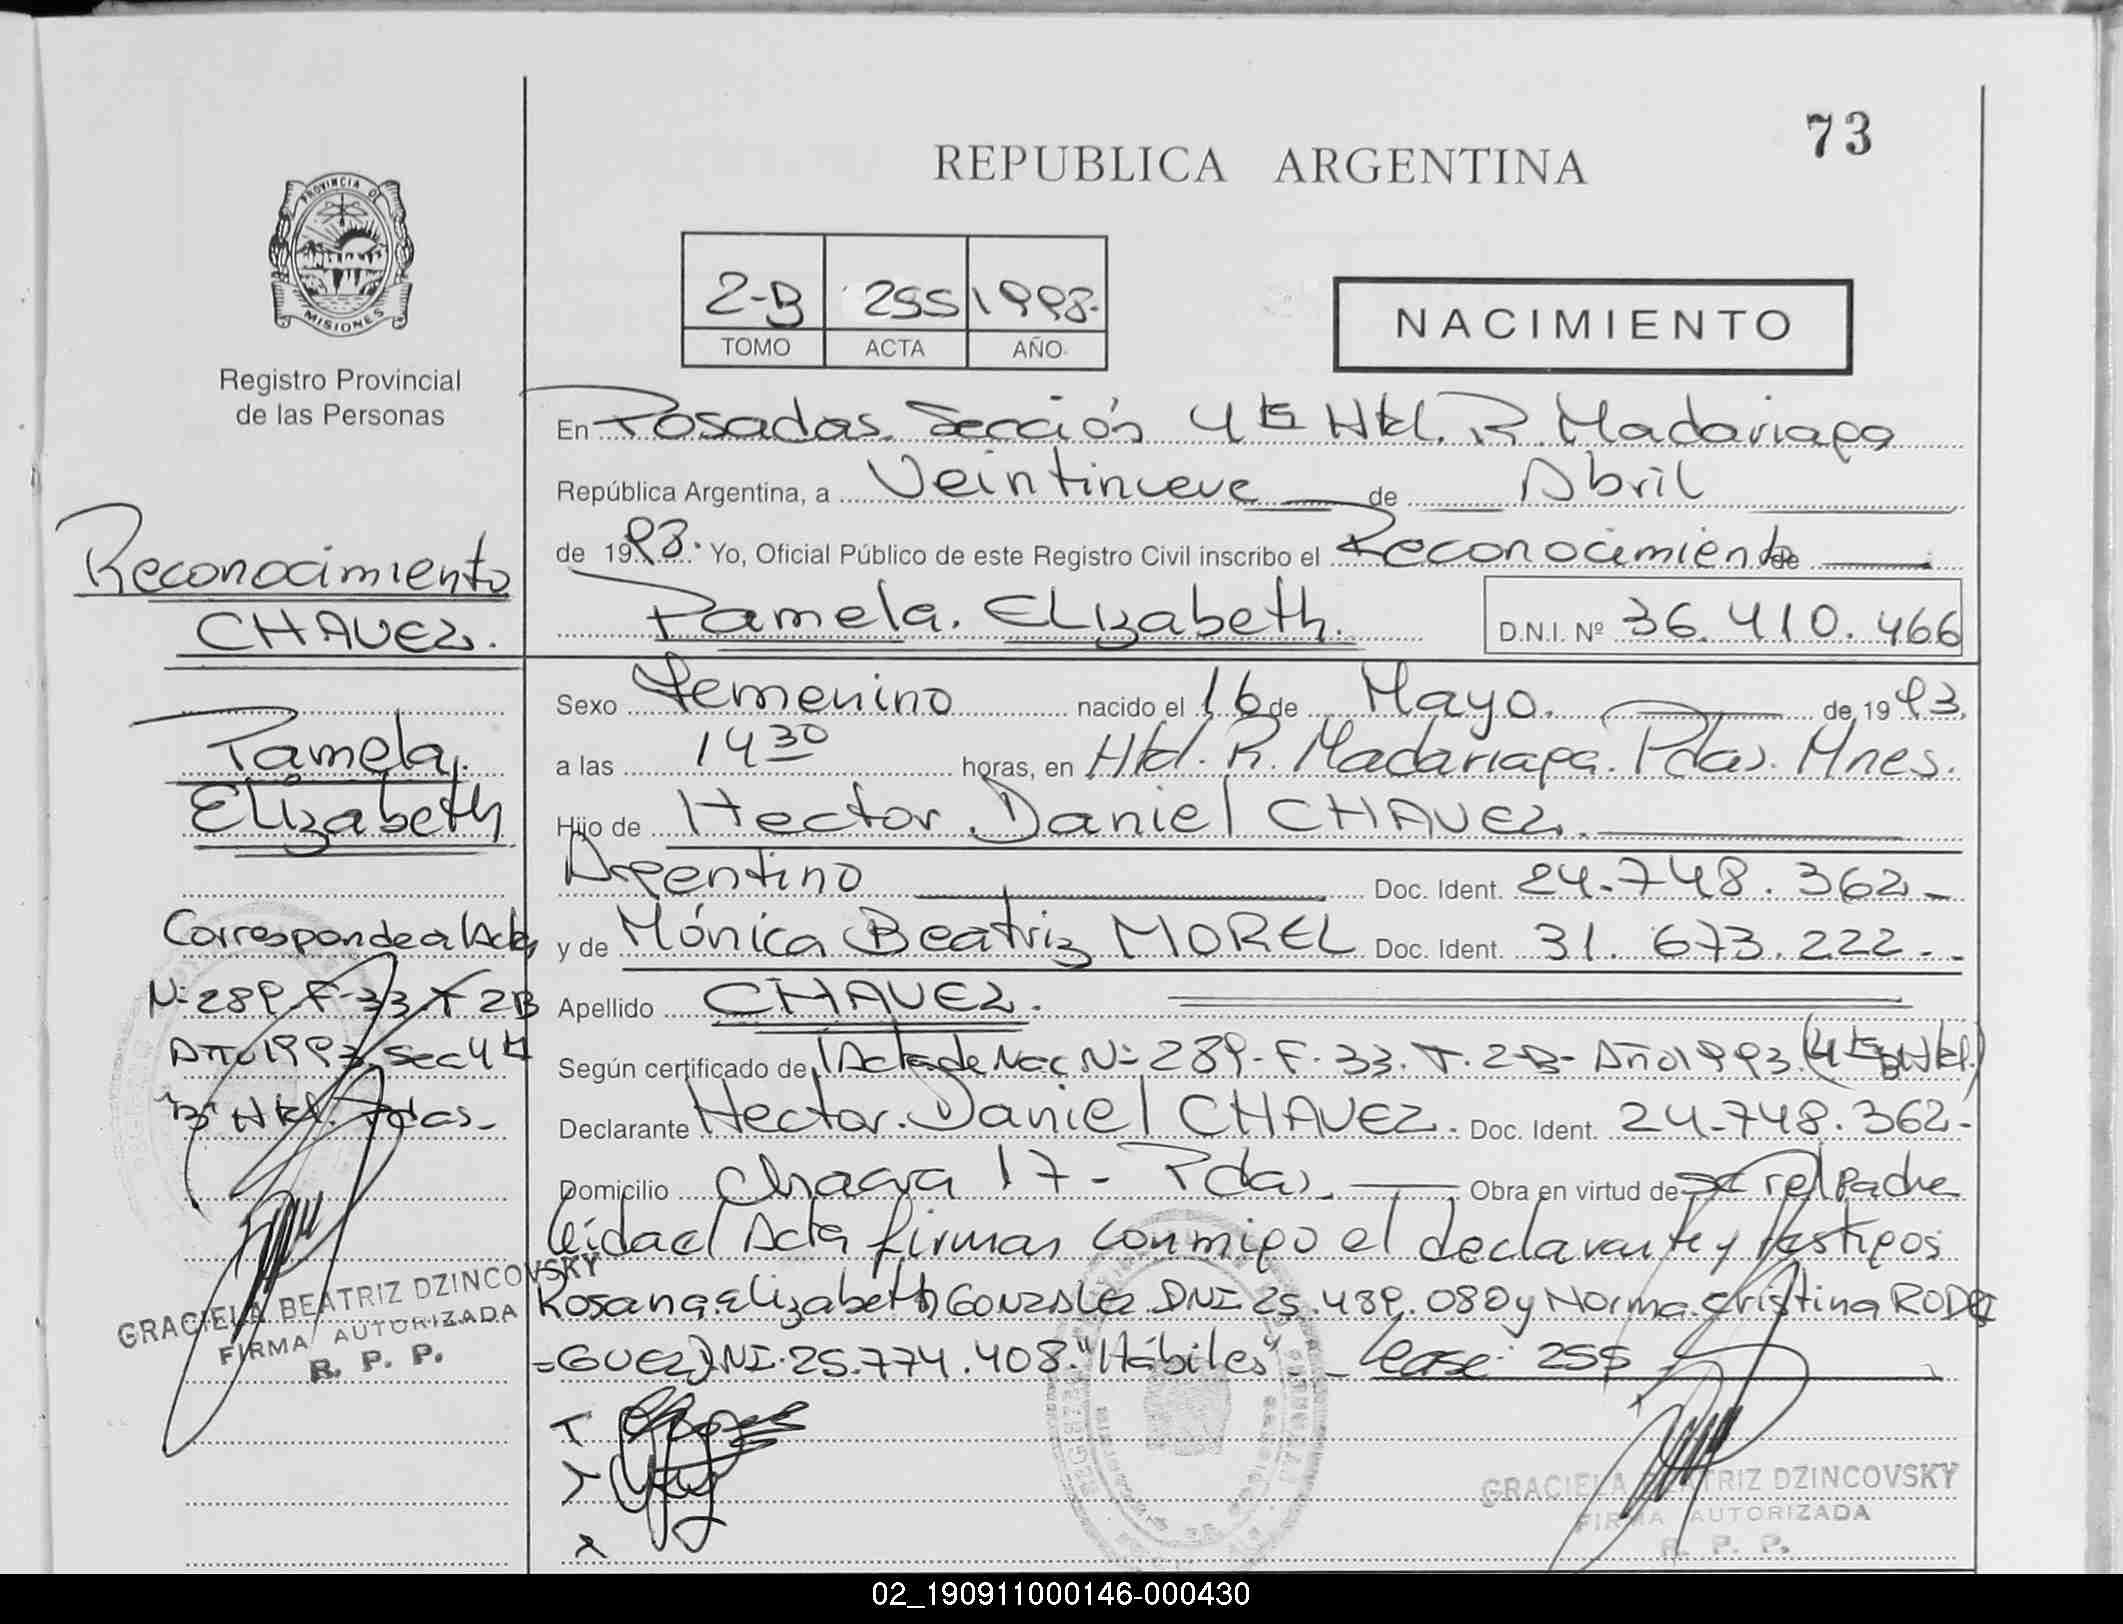 73
REPUBLICA ARGENTINA
PROVINCIA DE
MISIONES
Registro Provincial
de las Personas
2-B 255 1998.
TOMO ACTA AÑO
NACIMIENTO
En Posadas. Sección 4ta Htal. R. Madariaga
República Argentina, a Veintinueve de Abril
de 1998. Yo, Oficial Público de este Registro Civil inscribo el Reconocimiento de
Pamela. Elizabeth. D.N.I. Nº 36.410.466
Sexo Femenino nacido el 16 de Mayo. de 1993.
a las 14 30 horas, en Htal. R. Madariaga. Pdas. Mnes.
Hijo de Hector Daniel CHAVEZ.
Argentino Doc. Ident. 24.748.362-
y de Mónica Beatriz MOREL Doc. Ident. 31.673.222-
Apellido CHAVEZ.
Según certificado de Acta de Nac Nº 289-F-33.T.2-B-Año 1993.(4ta B Htal.)
Declarante Hector Daniel CHAVEZ. Doc. Ident. 24.748.362-
Domicilio Chacra 17- Pdas. Obra en virtud de ser el padre
leída el Acta firman conmigo el declarante y testigos
Rosana Elizabeth GONZALEZ DNI 25.489.080 y Norma Cristina RODRI
=GUEZ DNI.25.774.408."Hábiles" - lease: 255
GRACIELA BEATRIZ DZINCOVSKY
FIRMA AUTORIZADA
R. P. P.
Reconocimiento
CHAVEZ.
Pamela.
Elizabeth
Corresponde al Acta
Nº 289 F-33 T 2B
Año 1993 Sec 4ta
"B" Htal. Pdas-
GRACIELA BEATRIZ DZINCOVSKY
FIRMA AUTORIZADA
R. P. P.
02_190911000146-000430